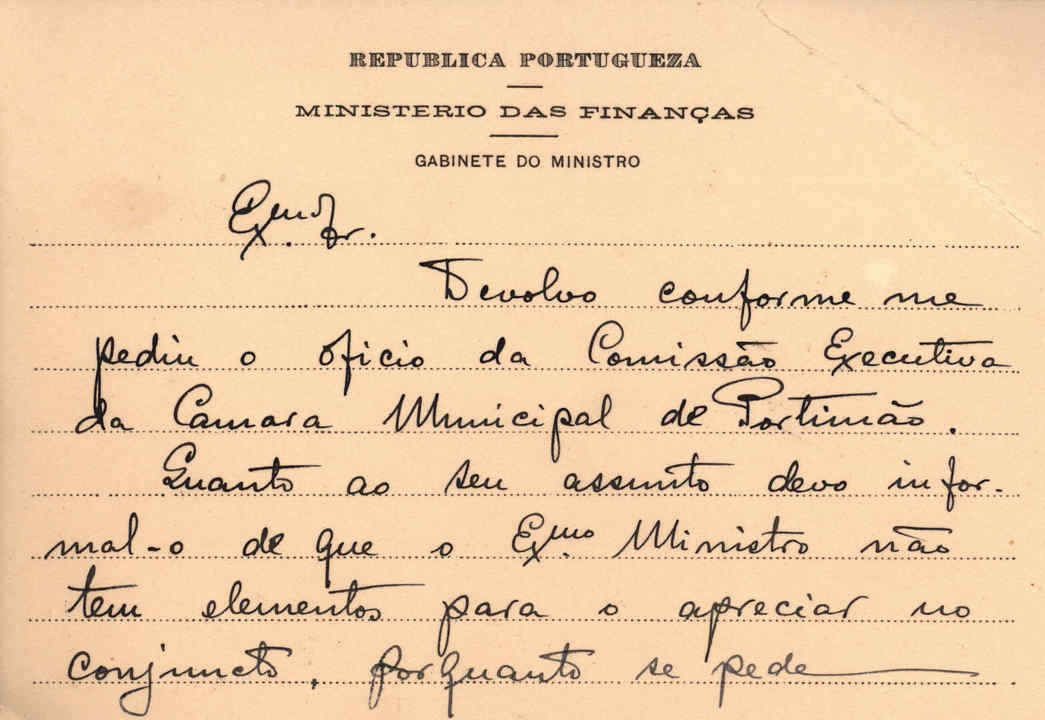 REPUBLICA PORTUGUEZA
MINISTERIO DAS FINANÇAS
GABINETE DO MINISTRO
Exmo. Sr.
Devolvo conforme me
pediu o oficio da Comissão Executiva
da Camara Municipal de Portimão.
Quanto ao seu assunto devo infor-
mal-o de que o Exmo. Ministro não
tem elementos para o apreciar no
conjuncto, porquanto se pede